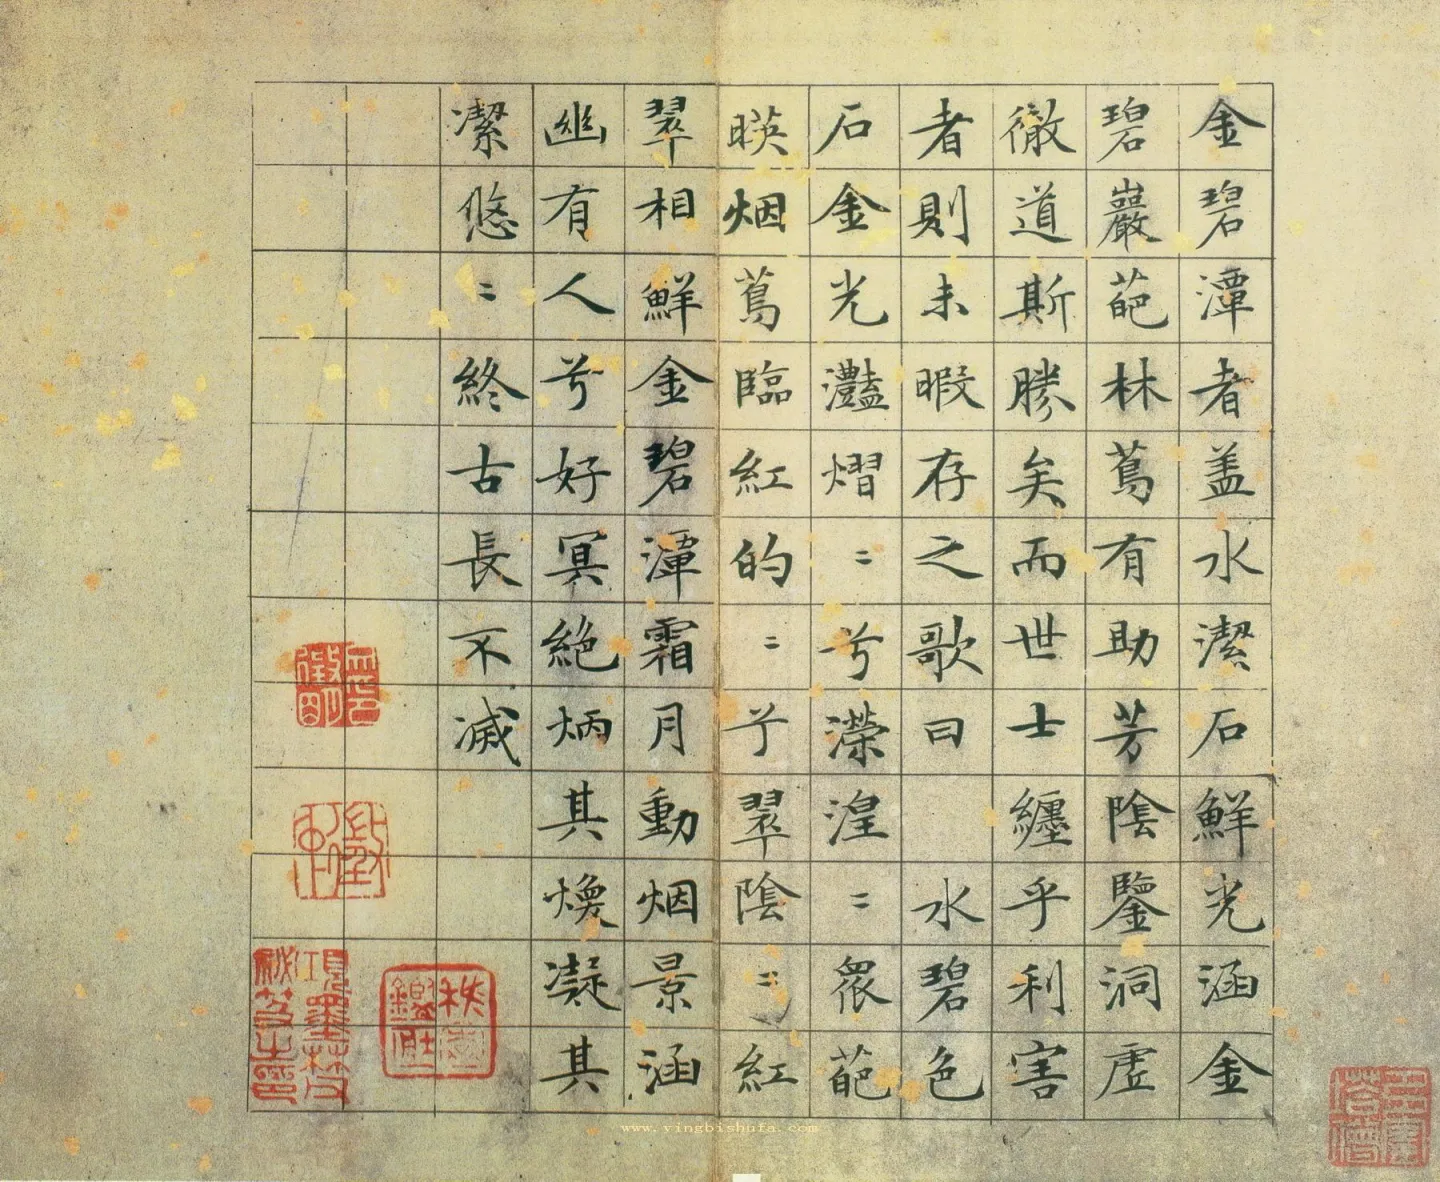 金碧潭者盖水潔石鮮光涵金
碧巖葩林蔦有助芳陰鑒洞虛
徹道斯勝矣而世士纏乎利害
者則未暇存之歌曰 水碧色
石金光灩熠〻兮濴湟〻衆葩
暎烟蔦臨紅的〻兮翠陰〻紅
翠相鮮金碧潭霜月動烟景涵
幽有人兮好冥絕炳其煥凝其
潔悠〻終古長不滅
www.yingbishufa.com